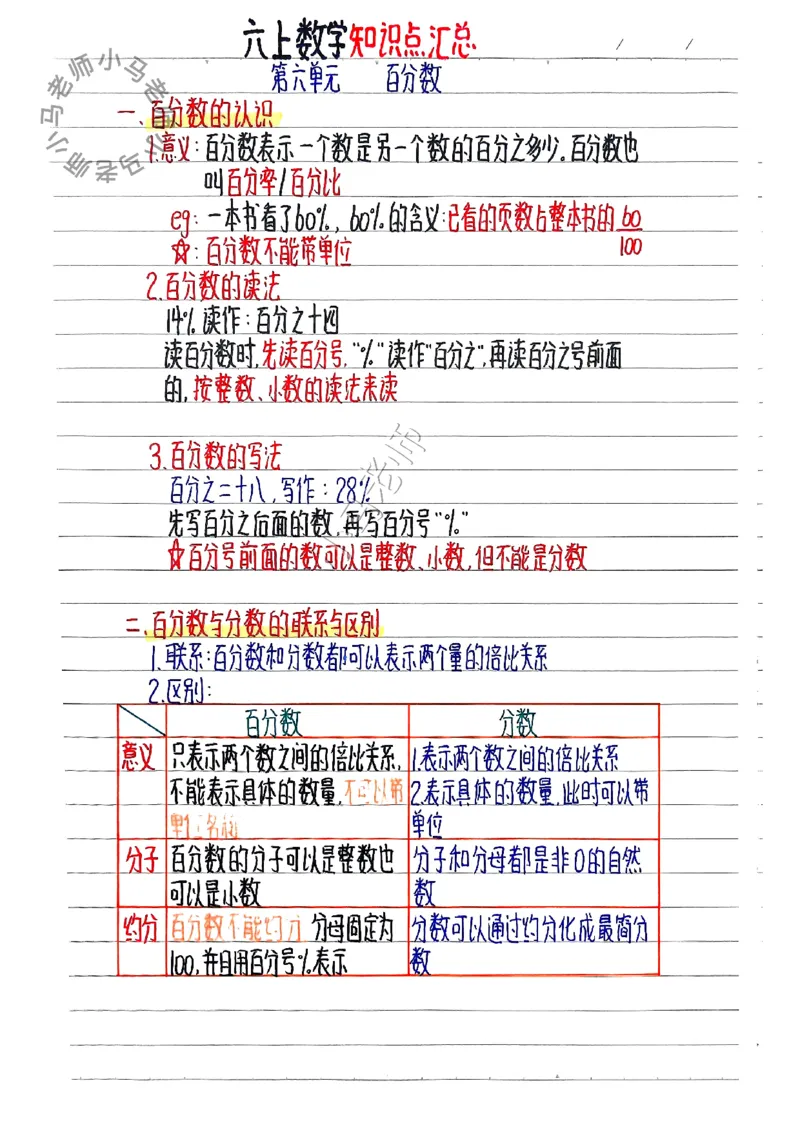 六上数学知识点汇总
第六单元 百分数
一、百分数的认识
1.意义:百分数表示一个数是另一个数的百分之多少。百分数也
叫百分率/百分比
eg:一本书看了60%,60%的含义:已看的页数占整本书的60/100
☆:百分数不能带单位
2.百分数的读法
14%读作:百分之十四
读百分数时,先读百分号,"%"读作"百分之",再读百分之号前面
的,按整数、小数的读法来读
3.百分数的写法
百分之二十八,写作:28%
先写百分之后面的数,再写百分号"%"
☆百分号前面的数可以是整数、小数,但不能是分数
二、百分数与分数的联系与区别
1.联系:百分数和分数都可以表示两个量的倍比关系
2.区别:
百分数 分数
意义 只表示两个数之间的倍比关系, 1.表示两个数之间的倍比关系
不能表示具体的数量,不可以带 2.表示具体的数量,此时可以带
单位名称 单位
分子 百分数的分子可以是整数也 分子和分母都是非0的自然
可以是小数 数
约分 百分数不能约分 分母固定为 分数可以通过约分化成最简分
100,并且用百分号%表示 数
小马老师小马老师小马老师
小马老师